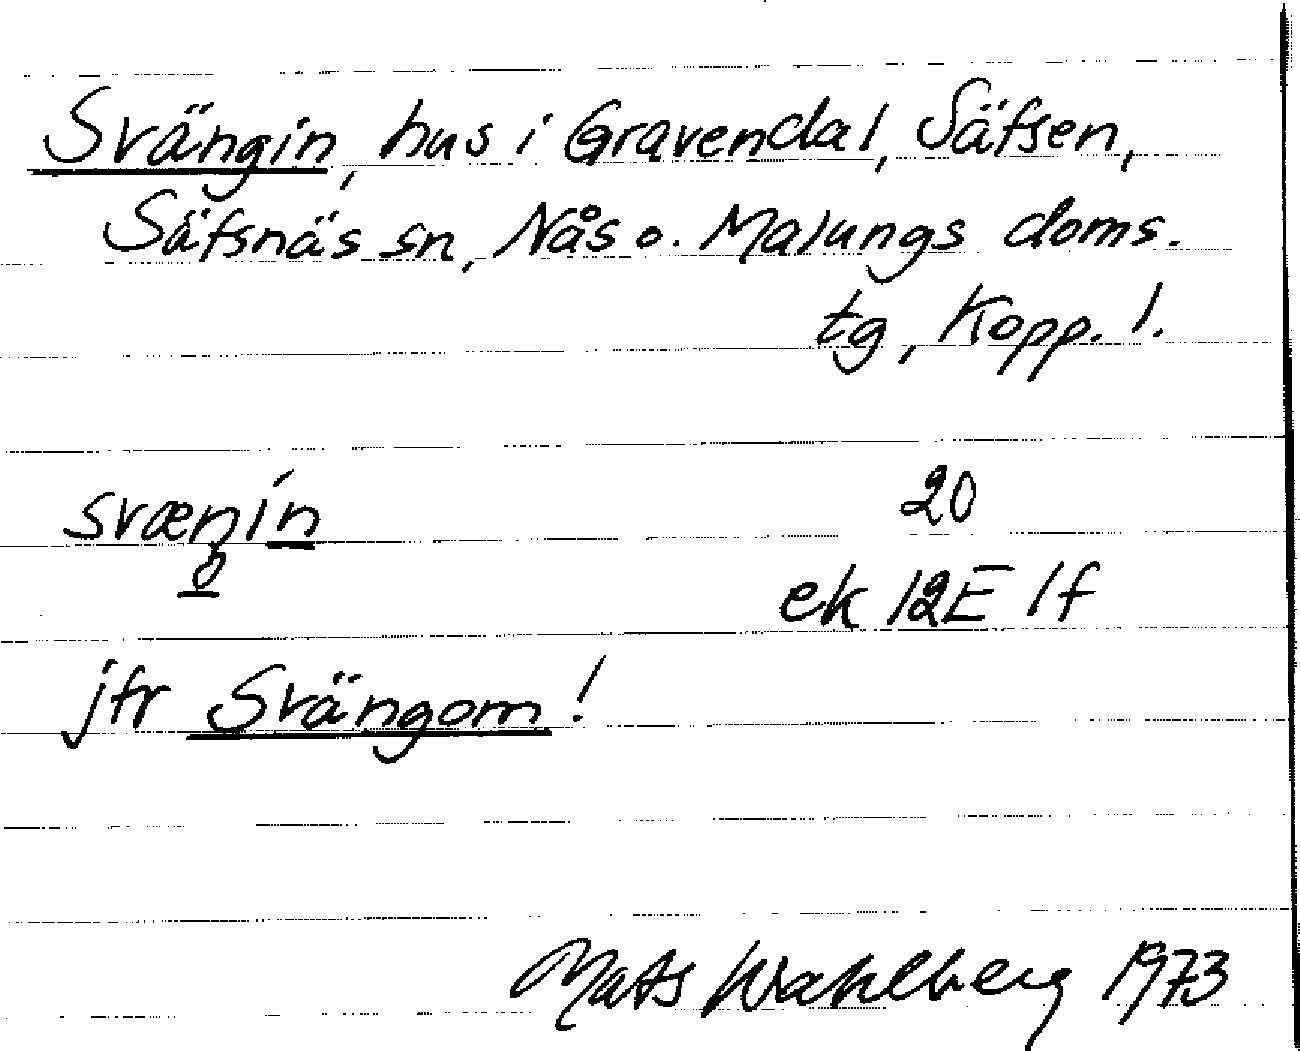 Svängin, hus i Gravendal, Säfsen,
Säfsnäs sn, Nås o. Malungs doms.
tg, Kopp. l.
svæŋìn 20
ek 12E 1f
jfr Svängom!
Mats Wahlberg 1973